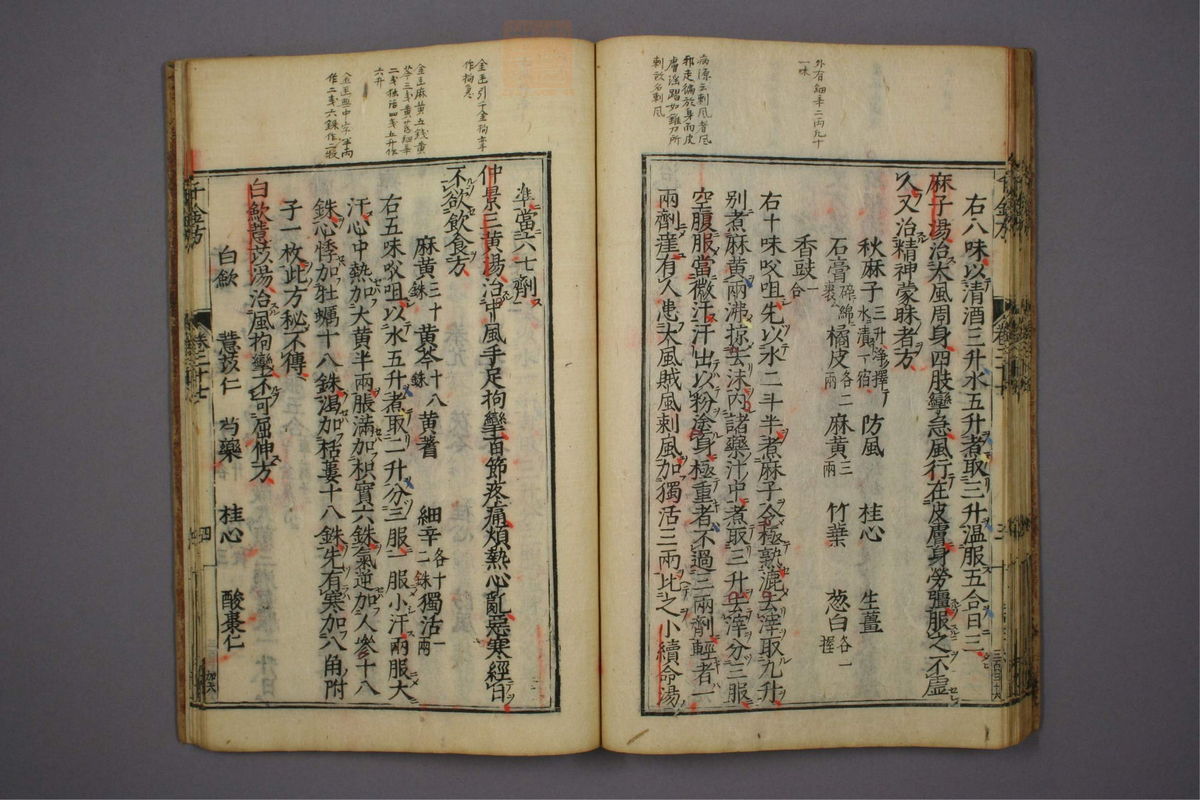 外有細辛二兩九十
一味
病源云刺風者風
邪走徧於身而皮
膚淫躍如錐刀所
刺故名刺風
右八味以清酒三升水五升煮取三升溫服五合日三
麻子湯治大風周身四肢攣急風行在皮膚身勞彊服之不虛
人又治精神蒙昧者方
秋麻子三升淨擇水漬一宿 防風 桂心 生薑
石膏碎綿裹 橘皮各二兩 麻黃三兩 竹葉 葱白各一握
香豉一合
右十味㕮咀先以水二斗半煮麻子令極熟漉去滓取九升
別煮麻黃兩沸掠去沫內諸藥汁中煮取三升去滓分三服
空腹服當微汗汗出以粉塗身極重者不過三兩劑輕者一
兩劑瘥有人患大風賊風刺風加獨活三兩比之小續命湯
千金方 卷二十七
金匱引千金拘攣
作拘急
金匱麻黃五錢黃
芩三錢黃芪細辛
二錢獨活四錢五升作
六升
準當六七劑
仲景三黃湯治中風手足拘攣百節疼痛煩熱心亂惡寒經日
不欲飲食方
麻黃三十銖 黃芩十八銖 黃蓍 細辛各十二銖 獨活一兩
右五味㕮咀以水五升煮取二升分二服一服小汗兩服大
汗心中熱加大黃半兩脹滿加枳實六銖氣逆加人參十八
銖心悸加牡蠣十八銖渴加栝蔞十八銖先有寒加八角附
子一枚此方秘不傳
白歛薏苡湯治風拘攣不可屈伸方
白歛 薏苡仁 芍藥 桂心 酸棗仁
千金方 卷二十七 四